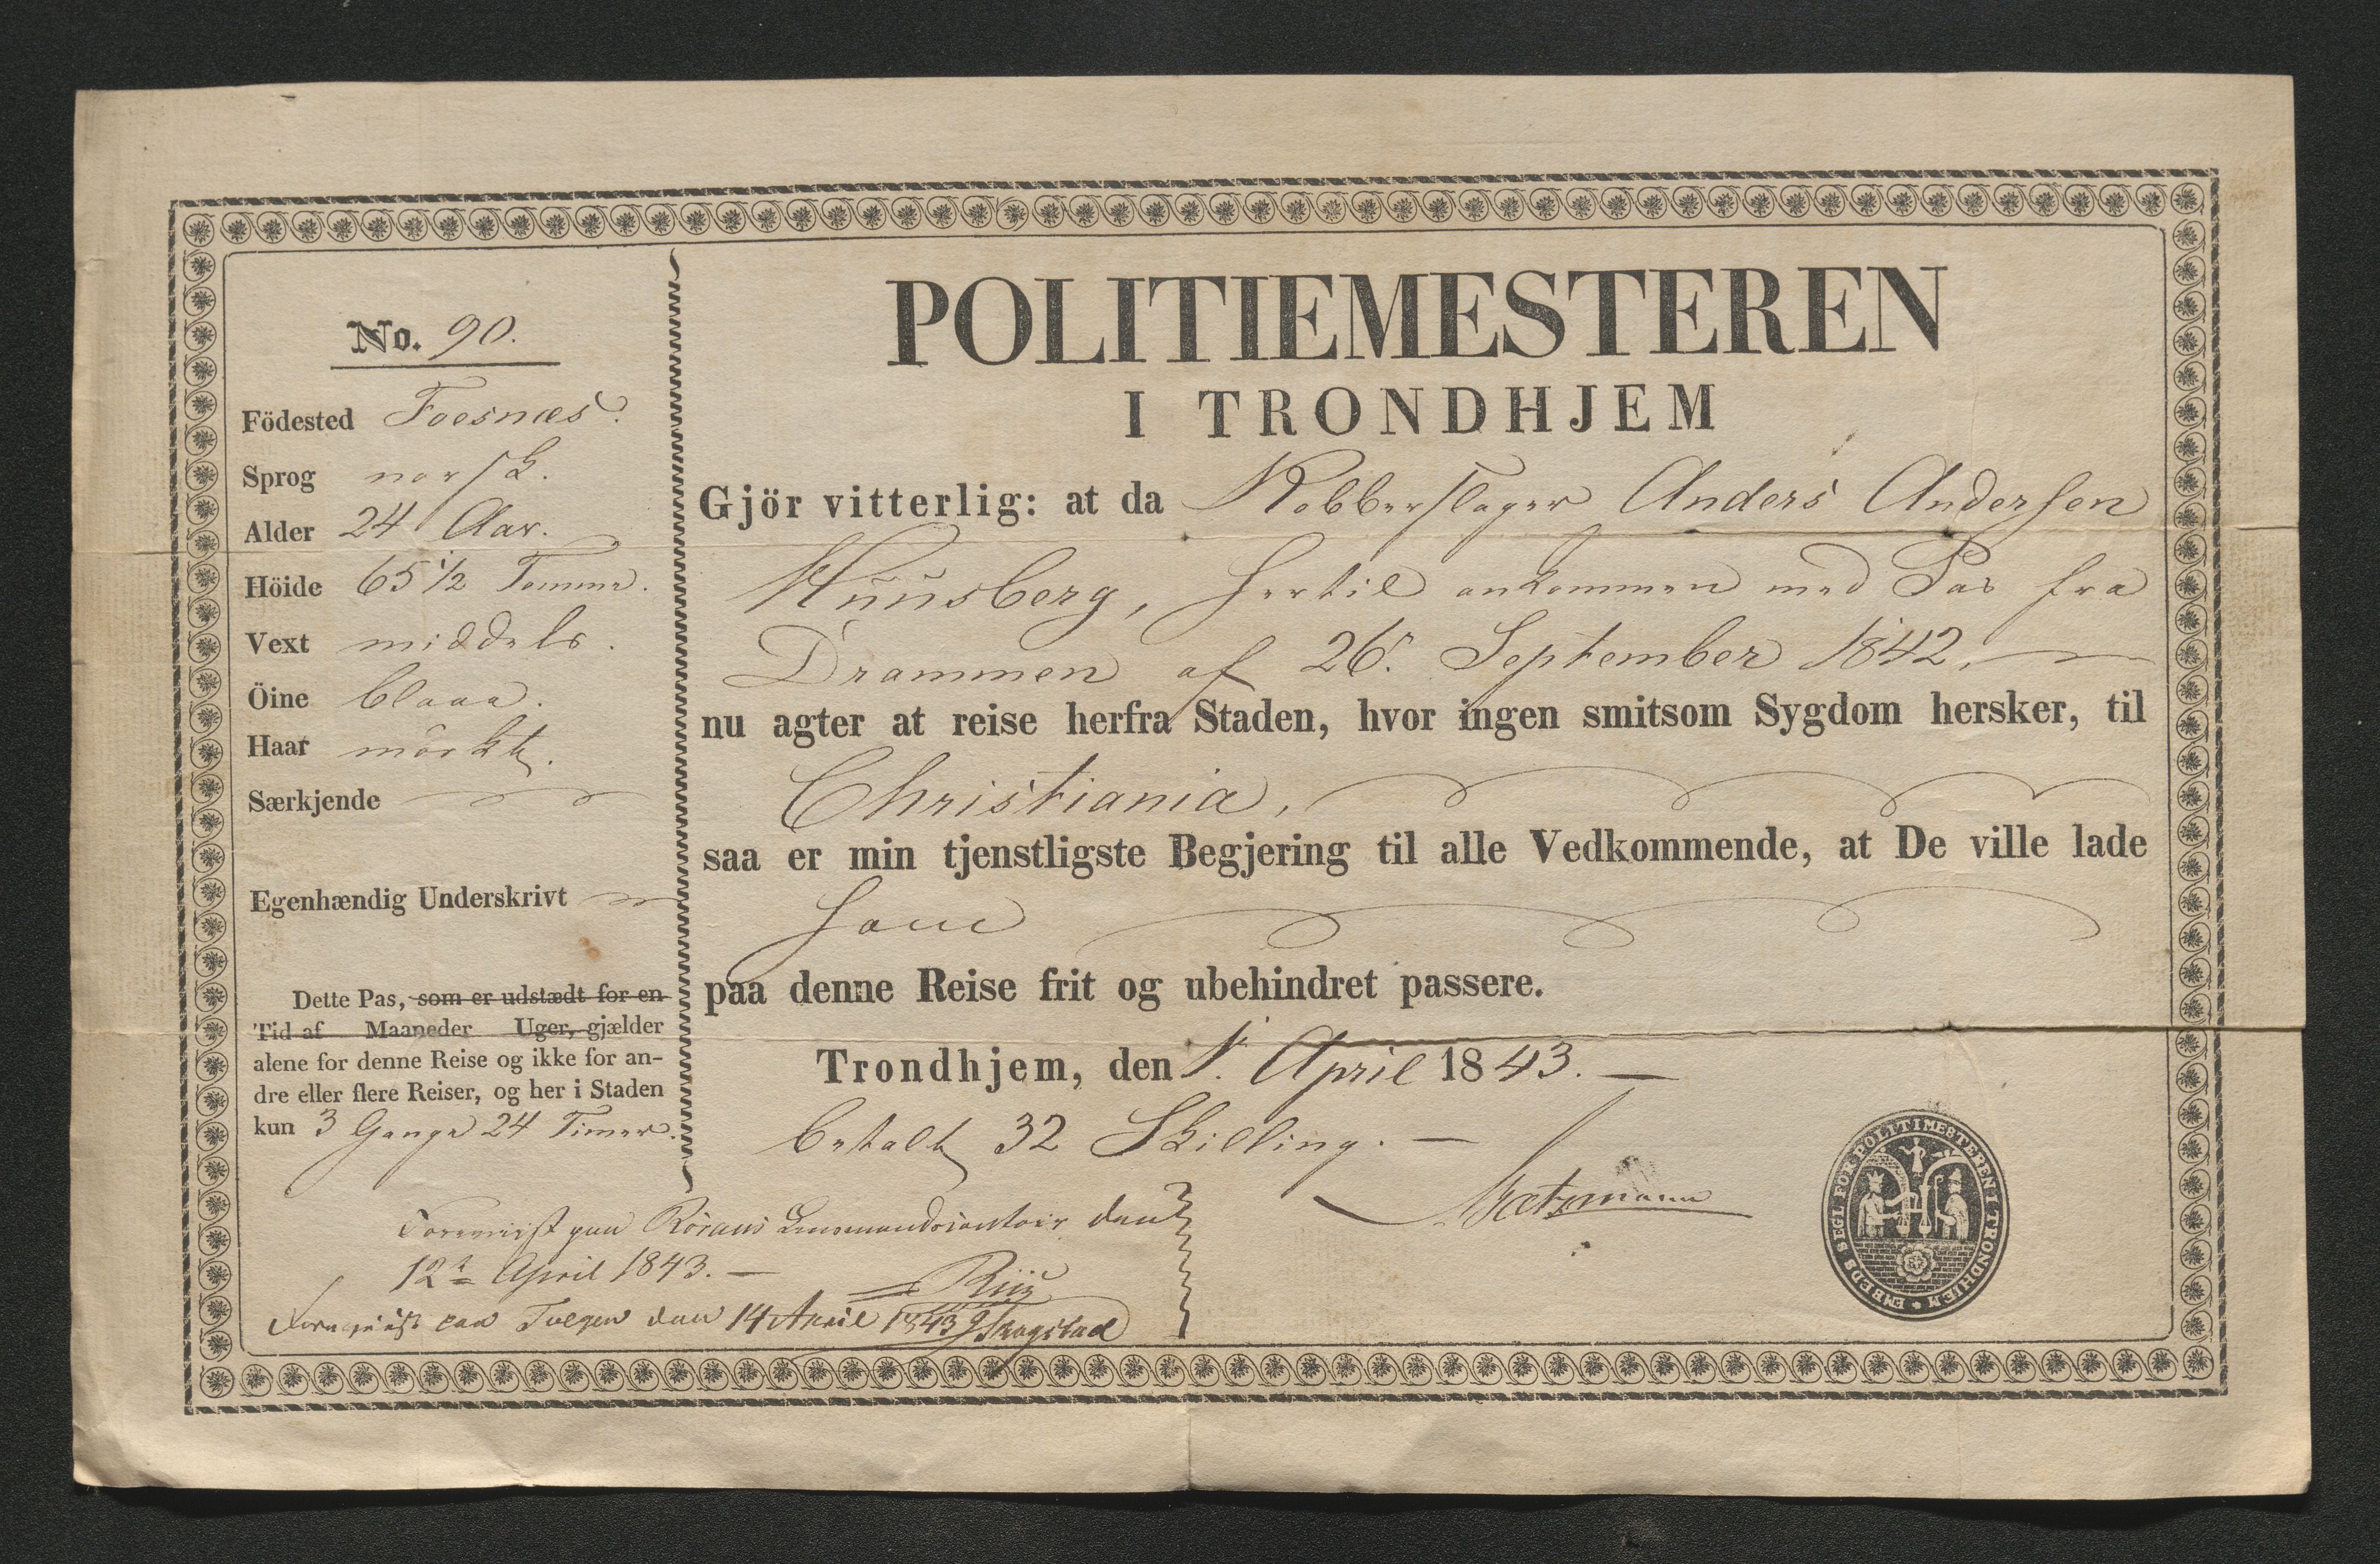 No. 90.
Födested Foesnæs.
Sprog norsk.
Alder 24 Aar.
Höide 65 1/2 Tomme.
Vext middels.
Öine blaae.
Haar mörkt.
Særkjende
Egenhændig Underskrivt
Dette Pas, som er udstædt for en
Tid af Maaneder Uger, gjælder
alene for denne Reise og ikke for an-
dre eller flere Reiser, og her i Staden
kun 3 Gange 24 Timer.
POLITIEMESTEREN
I TRONDHJEM
Gjör vitterlig: at da Kobberslager Anders Andersen
Huusberg, hertil ankommen med Pas fra
Drammen af 26. September 1842,
nu agter at reise herfra Staden, hvor ingen smitsom Sygdom hersker, til
Christiania,
saa er min tjenstligste Begjering til alle Vedkommende, at De ville lade
ham
paa denne Reise frit og ubehindret passere.
Trondhjem, den 1. April 1843.
betalt 32 Skilling.
Foreviist paa Röraas Lensmandscontoir den
12te April 1843.
Foreviist paa Tolgen den 14 April 1843 Skogstad
EMBEDS SEGL FOR POLITIMESTEREN I TRONDHJEM